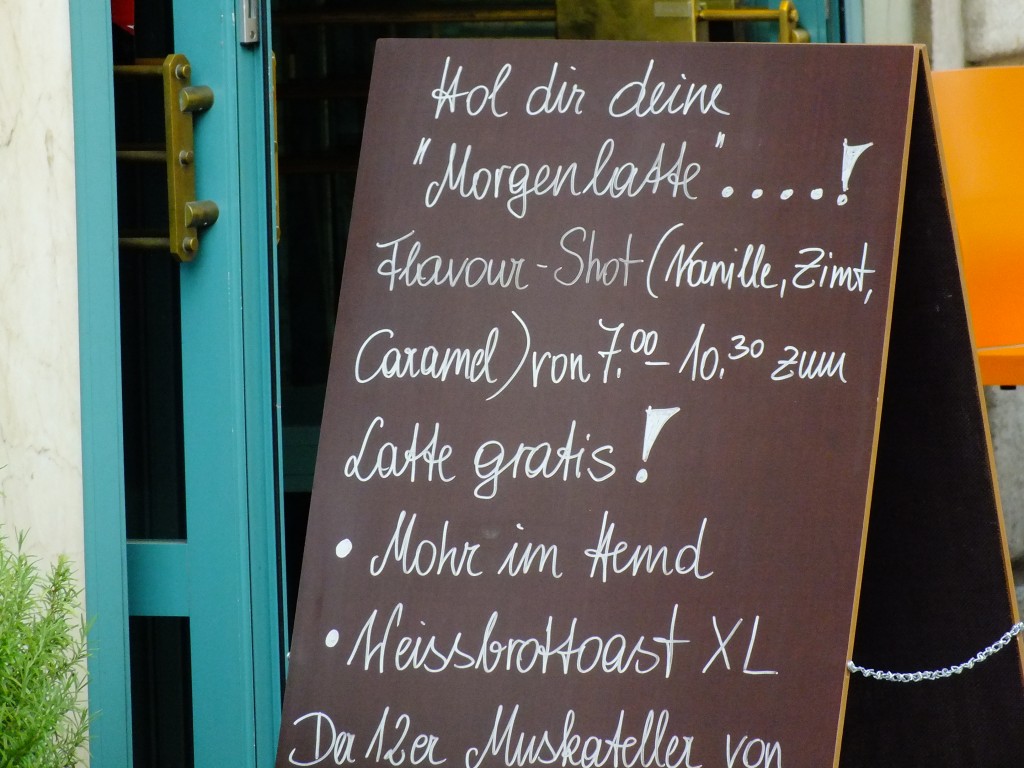 Hol dir deine
"Morgenlatte".....!
Flavour-Shot (Vanille, Zimt,
Caramel) von 7.00 - 10.30 zum
Latte gratis!
• Mohr im Hemd
• Weissbrottoast XL
Der 12er Muskateller von